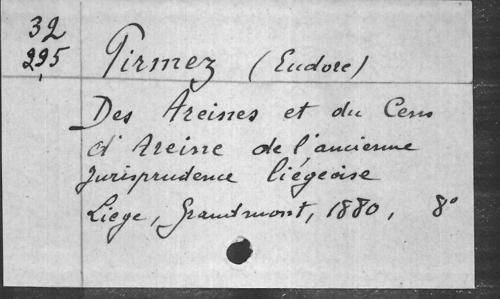 32
295
Pirmez (Eudore)
Des Areines et du Cens
d'Areine de l'ancienne
Jurisprudence liégeoise
Liege, Grandmont, 1880, 8°